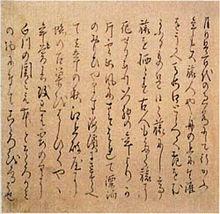 月日は百代の過客にして行かふ
年も又旅人也舟の上に生涯
をうかへ馬の口とらえて老をむか
ふる物は日々旅にして
旅を栖とす古人も多く旅に
死せるあり予もいつれの年よりか
片雲の風にさそはれて漂泊
の思ひやます海浜にさすらへ
て去年の秋江上の破屋に
蜘の古巣をはらひてやゝ
年も暮春立る霞の空に
白川の関こえんとそゝろ神
の物につきてこゝろをくるはせ